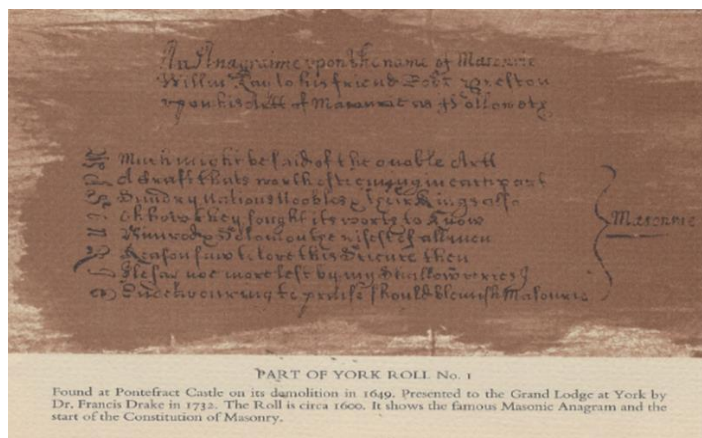 An Anagraime upon the name of Masonrie
Willm Kay to his friend Robt Preston
upon his Artt of Masonrie as Followeth
M Much might be said of the o noble Artt
A A Craft thats worth estieming in each part
S Sundry Nations Noobles & their Kings also
O Oh how they sought its worth to know
N Nimrod & Solomon the wisest of all men
R Reason saw to love this Science then
I Ile say noe more lest by my Shallow verses I
E Endeavouring to praise should blemish Masonrie
Masonrie
PART OF YORK ROLL No. 1
Found at Pontefract Castle on its demolition in 1649. Presented to the Grand Lodge at York by
Dr. Francis Drake in 1732. The Roll is circa 1600. It shows the famous Masonic Anagram and the
start of the Constitution of Masonry.